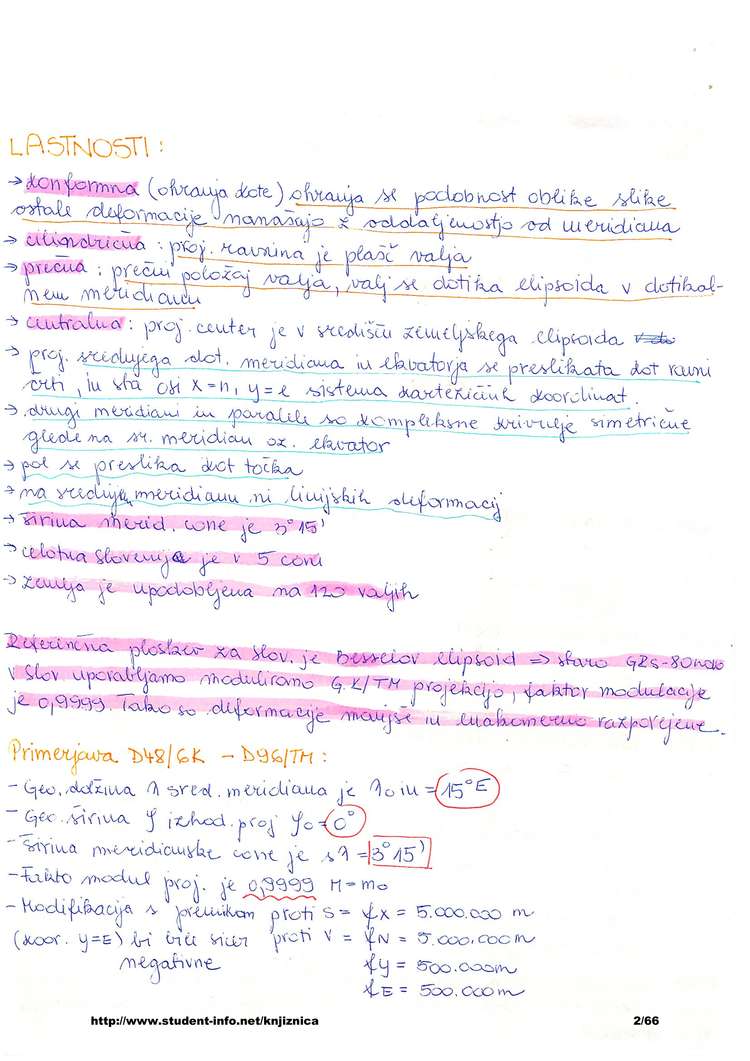 LASTNOSTI:
→ konformna (ohranja kote) ohranja se podobnost oblike slike
ostale deformacije nanašajo z oddaljenostjo od meridiana
→ cilindrična : proj. ravnina je plašč valja
→ prečna : prečni položaj valja, valj se dotika elipsoida v dotikal-
nem meridianu
→ centralna: proj. center je v središču zemeljskega elipsoida
→ proj. srednjega dot. meridiana in ekvatorja se preslikata kot ravni
črti, in sta osi x=n, y=e sistema kartezičnih koordinat.
→ drugi meridiani in paralele so kompleksne krivulje simetrične
glede na sr. meridian oz. ekvator
→ pol se preslika kot točka
→ na srednjem meridianu ni linijskih deformacij
→ širina merid. cone je 3°15'
→ celotna slovenija je v 5 coni
→ zemlja je upodobljena na 120 valjih
Referenčna ploskev za slov. je Besselov elipsoid => staro GRS-80 novo
v slov uporabljamo modulirano G.K/TM projekcijo, faktor modulacije
je 0,9999. Tako so deformacije manjše in enakomerno razporejene.
Primerjava D48/GK - D96/TM:
- Geo. dolžina λ sred. meridiana je λo in = 15°E
- Geo. širina φ izhod. proj φo = 0°
- Širina meridianske cone je sλ = 3°15'
- Fakto modul proj. je 0,9999 M = mo
- Modifikacija s premikom proti S = fx = 5.000.000 m
(koor. y=E) bi bile sicer proti V = fN = 5.000.000 m
negativne fy = 500.000m
fE = 500.000m
http://www.student-info.net/knjiznica 2/66